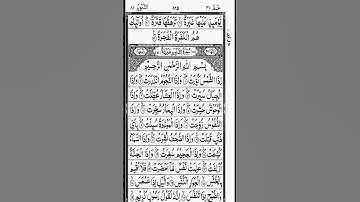 عَمَّ ٣٠
٨٢٥
التَّكْوِيْر ٨١
يَّوْمَئِذٍ عَلَيْهَا غَبَرَةٌ تَرْهَقُهَا قَتَرَةٌ اُولٰٓئِكَ
هُمُ الْكَفَرَةُ الْفَجَرَةُ
بِسْمِ اللّٰهِ الرَّحْمٰنِ الرَّحِيْمِ
اِذَا الشَّمْسُ كُوِّرَتْ وَاِذَا النُّجُوْمُ انْكَدَرَتْ وَاِذَا
الْجِبَالُ سُيِّرَتْ وَاِذَا الْعِشَارُ عُطِّلَتْ وَاِذَا
الْوُحُوْشُ حُشِرَتْ وَاِذَا الْبِحَارُ سُجِّرَتْ وَاِذَا
النُّفُوْسُ زُوِّجَتْ وَاِذَا الْمَوْءٗدَةُ سُئِلَتْ بِاَيِّ
ذَنْۢبٍ قُتِلَتْ وَاِذَا الصُّحُفُ نُشِرَتْ وَاِذَا السَّمَآءُ
كُشِطَتْ وَاِذَا الْجَحِيْمُ سُعِّرَتْ وَاِذَا الْجَنَّةُ
اُزْلِفَتْ عَلِمَتْ نَفْسٌ مَّآ اَحْضَرَتْ فَلَآ اُقْسِمُ
بِالْخُنَّسِ الْجَوَارِ الْكُنَّسِ وَالَّيْلِ اِذَا عَسْعَسَ
وَالصُّبْحِ اِذَا تَنَفَّسَ اِنَّهٗ لَقَوْلُ رَسُوْلٍ كَرِيْمٍ